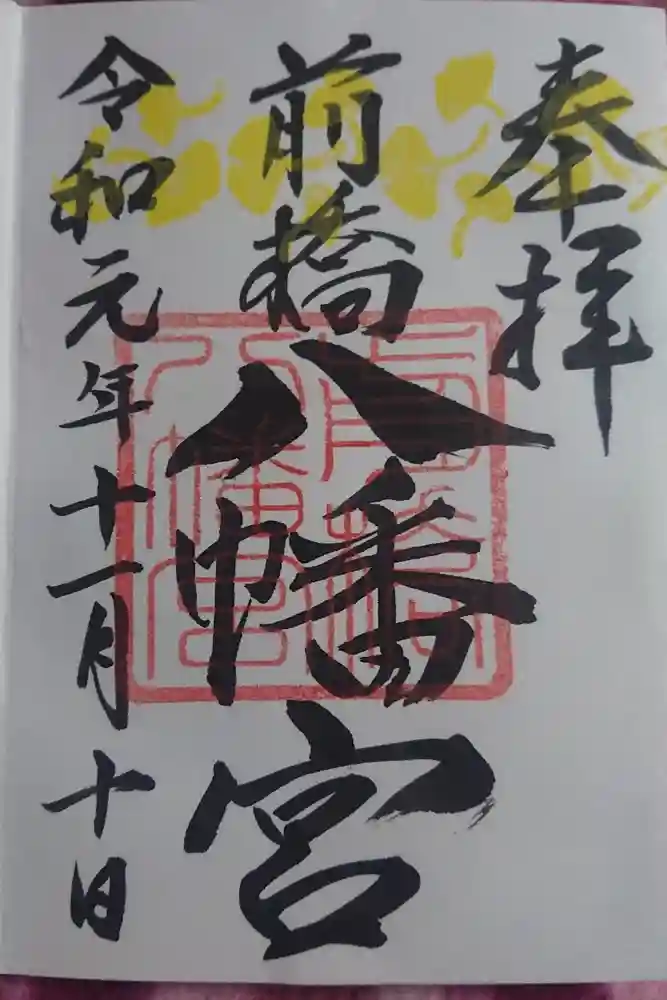 奉拝
前橋八幡宮
令和元年十一月十日
前橋八幡宮